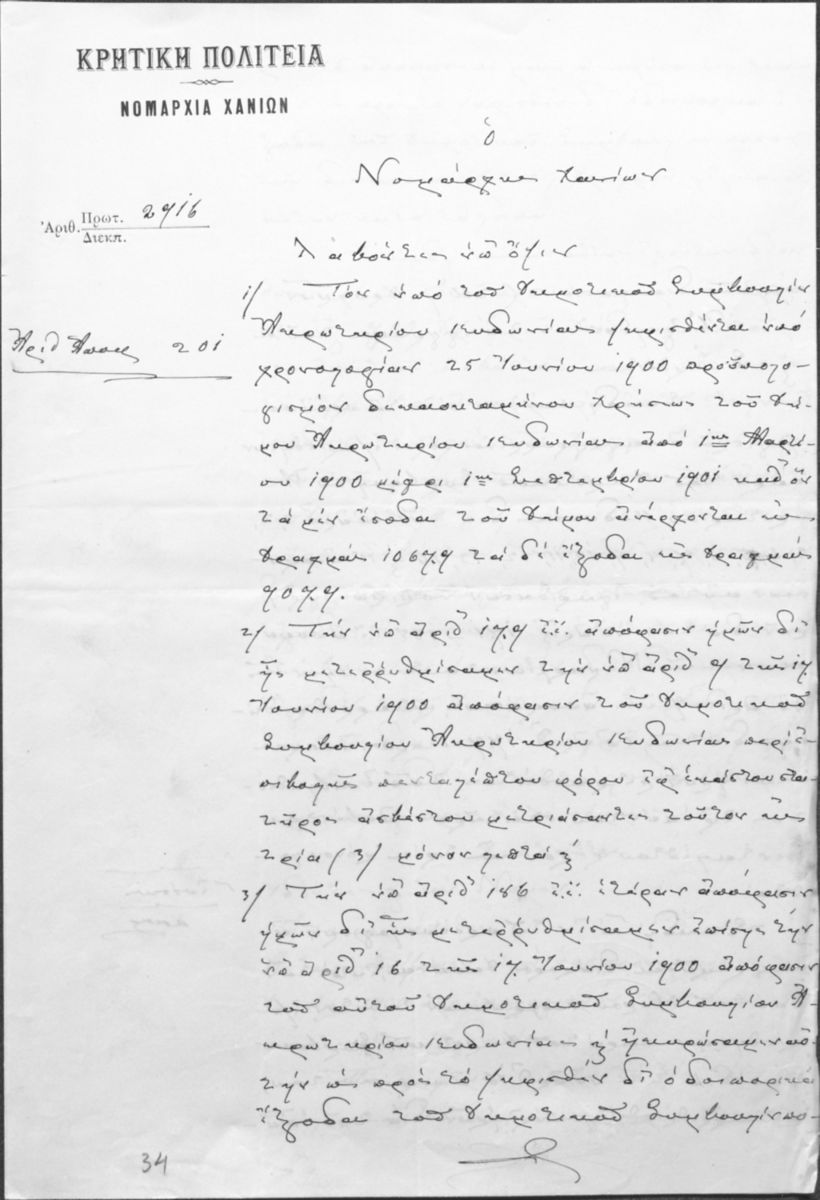 ΚΡΗΤΙΚΗ ΠΟΛΙΤΕΙΑ
ΝΟΜΑΡΧΙΑ ΧΑΝΙΩΝ
Ἀριθ. Πρωτ. 2916
Διεκπ.
Ἀριθ Αποφ 201
ὁ
Νομάρχης Χανίων
Λαβόντες ὑπ' ὄψιν
1/ Τὸν ὑπὸ τοῦ Δημοτικοῦ Συμβουλίου
Ἀκρωτηρίου Κυδωνίας ψηφισθέντα ὑπό
χρονολογίαν 25 Ἰουνίου 1900 προϋπολο-
γισμὸν δεκαοκταμήνου χρήσεως τοῦ Δή-
μου Ἀκρωτηρίου Κυδωνίας ἀπό 1ης Μαρτί-
ου 1900 μέχρι 1ης Σεπτεμβρίου 1901 καθ' ὃν
τὰ μὲν ἔσοδα τοῦ Δήμου ἀνέρχονται εἰς
δραχμάς 10679 τὰ δὲ ἔξοδα εἰς δραχμάς
9079.
2/ Τὴν ὑπ' ἀριθ 179 ἔ.ἔ. ἀπόφασιν ἡμῶν δι'
ἧς μετερρυθμίσαμεν τὴν ὑπ' ἀριθ 9 τῆς 17
Ἰουνίου 1900 ἀπόφασιν τοῦ Δημοτικοῦ
Συμβουλίου Ἀκρωτηρίου Κυδωνίας περὶ ἐ-
πιβολῆς πενταλέπτου φόρου ἐφ' ἑκάστου στα-
τῆρος ἀσβέστου μετριάσαντες τοῦτον εἰς
τρία (3) μόνον λεπτά ϗ
3/ Τὴν ὑπ' ἀριθ 186 ἔ.ἔ. ἑτέραν ἀπόφασιν
ἡμῶν δι' ἧς μετερρυθμίσαμεν ἐπίσης τὴν
ὑπ' ἀριθ 16 τῆς 17 Ἰουνίου 1900 ἀπόφασιν
τοῦ αὐτοῦ Δημοτικοῦ Συμβουλίου Ἀ-
κρωτηρίου Κυδωνίας ϗ
τὴν ὡς πρὸς τὸ ψηφισθὲν δι' ὁδοιπορικά
ἔξοδα τοῦ Δημοτικοῦ Συμβουλίου πο-
34